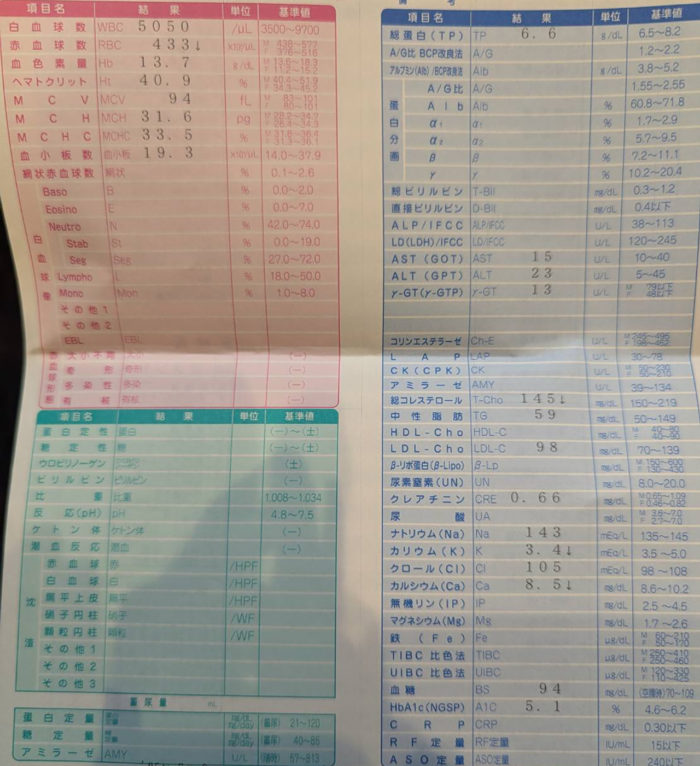 項目名 結果 単位 基準値
白血球数 WBC 5050 /uL 3500~9700
赤血球数 RBC 433↓ M 438~577 F 376~516
血色素量 Hb 13.7 g/dL M 13.6~18.3 F 11.2~15.2
ヘマトクリット Ht 40.9 % M 40.4~51.9 F 34.3~45.2
MCV MCV 94 fL M 83~101 F 80~101
MCH MCH 31.6 pg M 28.2~34.7 F 26.4~34.3
MCHC MCHC 33.5 % M 31.8~36.4 F 31.3~36.1
血小板数 血小板 19.3 14.0~37.9
網状赤血球数 網状 % 0.1~2.6
白血球像
Baso B % 0.0~2.0
Eosino E % 0.0~7.0
Neutro N % 42.0~74.0
Stab St % 0.0~19.0
Seg Seg % 27.0~72.0
Lympho L % 18.0~50.0
Mono Mon % 1.0~8.0
その他1
その他2
EBL EBL
赤血球形態
大小不同 大小 (-)
奇形 奇形 (-)
多染性 多染 (-)
有核 (-)
項目名 結果 単位 基準値
蛋白定性 蛋白 (-)~(±)
糖定性 糖 (-)~(±)
ウロビリノーゲン (±)
ビリルビン ビリルビン (-)
比重 比重 1.008~1.034
反応(pH) pH 4.8~7.5
ケトン体 ケトン体 (-)
潜血反応 潜血 (-)
沈渣
赤血球 赤 /HPF
白血球 白 /HPF
扁平上皮 扁平 /HPF
硝子円柱 硝子 /WF
顆粒円柱 顆粒 /WF
その他1
その他2
その他3
蓄尿量 mL
蛋白定量 mg/dL mg/day (蓄尿) 21~120
糖定量 mg/dL mg/day (蓄尿) 40~85
アミラーゼ AMY U/L 57~813
備考
項目名 結果 単位 基準値
総蛋白(TP) TP 6.6 g/dL 6.5~8.2
A/G比 BCP改良法 A/G 1.2~2.2
アルブミン(Alb)/BCP改良法 Alb g/dL 3.8~5.2
蛋白分画
A/G比 A/G 1.55~2.55
Alb Alb % 60.8~71.8
α₁ α₁ % 1.7~2.9
α₂ α₂ % 5.7~9.5
β β % 7.2~11.1
γ γ % 10.2~20.4
総ビリルビン T-Bil mg/dL 0.3~1.2
直接ビリルビン D-Bil mg/dL 0.4以下
ALP/IFCC ALP/IFCC U/L 38~113
LD(LDH)/IFCC LD/IFCC U/L 120~245
AST(GOT) AST 15 U/L 10~40
ALT(GPT) ALT 23 U/L 5~45
γ-GT(γ-GTP) γ-GT 13 U/L M 79以下 F 48以下
コリンエステラーゼ Ch-E U/L M 245~495 F 198~452
LAP LAP U/L 30~78
CK(CPK) CK U/L
アミラーゼ AMY U/L 39~134
総コレステロール T-Cho 145↓ mg/dL 150~219
中性脂肪 TG 59 mg/dL 50~149
HDL-Cho HDL-C mg/dL M 40~80 F 40~90
LDL-Cho LDL-C 98 mg/dL 70~139
β-リポ蛋白(β-Lipo) β-Lp mg/dL M 150~600 F 130~430
尿素窒素(UN) UN mg/dL 8.0~20.0
クレアチニン CRE 0.66 mg/dL M 0.65~1.09 F 0.46~0.82
尿酸 UA mg/dL M 3.6~7.0 F 2.7~7.0
ナトリウム(Na) Na 143 mEq/L 135~145
カリウム(K) K 3.4↓ mEq/L 3.5~5.0
クロール(Cl) Cl 105 mEq/L 98~108
カルシウム(Ca) Ca 8.5↓ mg/dL 8.6~10.2
無機リン(IP) IP mg/dL 2.5~4.5
マグネシウム(Mg) Mg mg/dL 1.7~2.6
鉄(Fe) Fe µg/dL M 60~210 F 50~170
TIBC 比色法 TIBC µg/dL M 250~410 F 250~460
UIBC 比色法 UIBC µg/dL M 120~330 F 110~425
血糖 BS 94 mg/dL (空腹時)70~109
HbA1c(NGSP) A1C 5.1 % 4.6~6.2
CRP CRP mg/dL 0.30以下
RF定量 RF定量 IU/mL 15以下
ASO定量 ASO定量 IU/mL 240以下